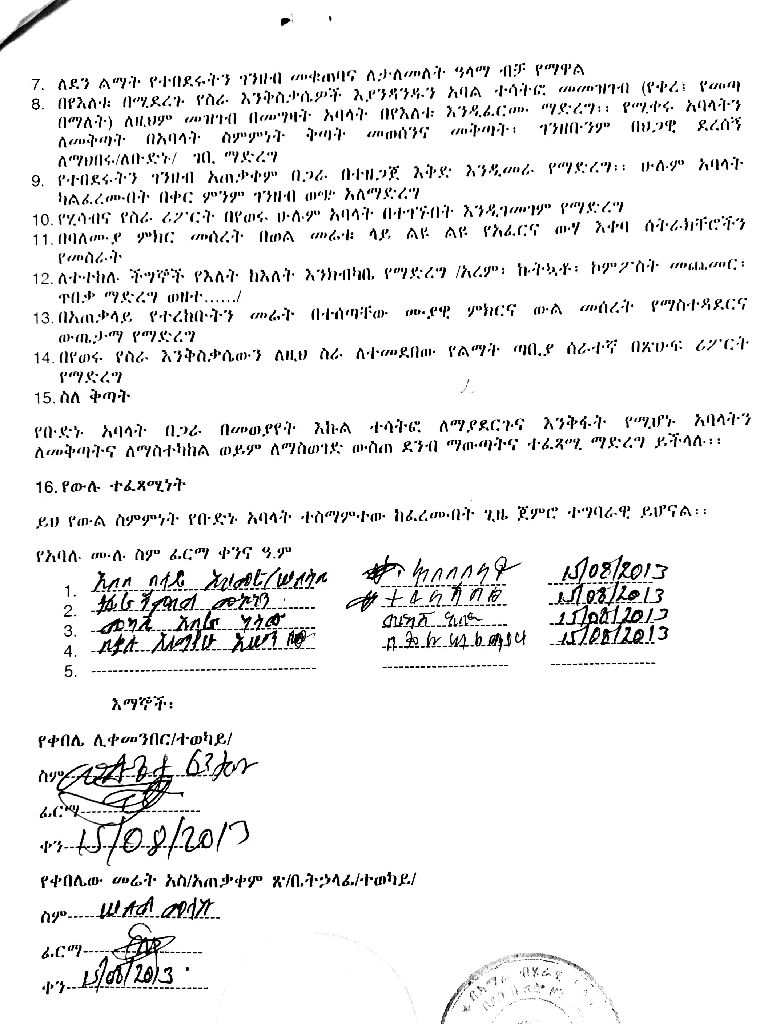 7. ለደን ልማት የተበደሩትን ገንዘብ መቁጠባና ለታለመለት ዓላማ ብቻ የማዋል
8. በየእለቱ በሚደረጉ የስራ እንቅስቃሴዎች እያንዳንዱን አባል ተሳትፎ መመዝገብ (የቀረ፤ የመጣ
በማለት) ለዚህም መዝገብ በመግዛት አባላት በየእለቱ እንዲፈርሙ ማድረግ፡፡ የሚቀሩ አባላትን
ለመቅጣት በአባላት ስምምነት ቅጣት መወሰንና መቅጣት፤ ገንዘቡንም በህጋዊ ደረሰኝ
ለማህበሩ/ለቡድኑ/ ገቢ ማድረግ
9. የተበደሩትን ገንዘብ አጠቃቀም በጋራ በተዘጋጀ እቅድ እንዲመራ የማድረግ፡፡ ሁሉም አባላት
ካልፈረሙበት በቀር ምንም ገንዘብ ወጭ አለማድረግ
10. የሂሳብና የስራ ሪፖርት በየወሩ ሁሉም አባላት በተገኙበት እንዲገመገም የማድረግ
11. በባለሙያ ምክር መሰረት በወል መሬቱ ላይ ልዩ ልዩ የአፈርና ውሃ እቀባ ስትራክቸሮችን
የመስራት
12. ለተተከሉ ችግኞች የእለት ከእለት እንክብካቤ የማድረግ /አረም፣ ኩትኳቶ፣ ኮምፖስት መጨመር፣
ጥበቃ ማድረግ ወዘተ....../
13. በአጠቃላይ የተረከቡትን መሬት በተሰጣቸው ሙያዊ ምክርና ውል መሰረት የማስተዳደርና
ውጤታማ የማድረግ
14. በየወሩ የስራ እንቅስቃሴውን ለዚህ ስራ ለተመደበው የልማት ጣቢያ ሰራተኛ በጽሁፍ ሪፖርት
የማድረግ
15. ስለ ቅጣት
የቡድኑ አባላት በጋራ በመወያየት እኩል ተሳትፎ ለማያደርጉና እንቅፋት የሚሆኑ አባላትን
ለመቅጣትና ለማስተካከል ወይም ለማስወገድ ውስጠ ደንብ ማውጣትና ተፈጻሚ ማድረግ ይችላሉ፡፡
16. የውሉ ተፈጻሚነት
ይህ የውል ስምምነት የቡድኑ አባላት ተስማምተው ከፈረሙበት ጊዜ ጀምሮ ተግባራዊ ይሆናል፡፡
የአባሉ ሙሉ ስም ፊርማ ቀንና ዓ.ም
1. 15/08/2013
2. 15/08/2013
3. 15/08/2013
4. 15/08/2013
5.
እማኞች፡
የቀበሌ ሊቀመንበር/ተወካይ/
ስም
ፊርማ
ቀን 15/08/2013
የቀበሌው መሬት አስ/አጠቃቀም ጽ/ቤት ኃላፊ/ተወካይ/
ስም
ፊርማ
ቀን 15/08/2013